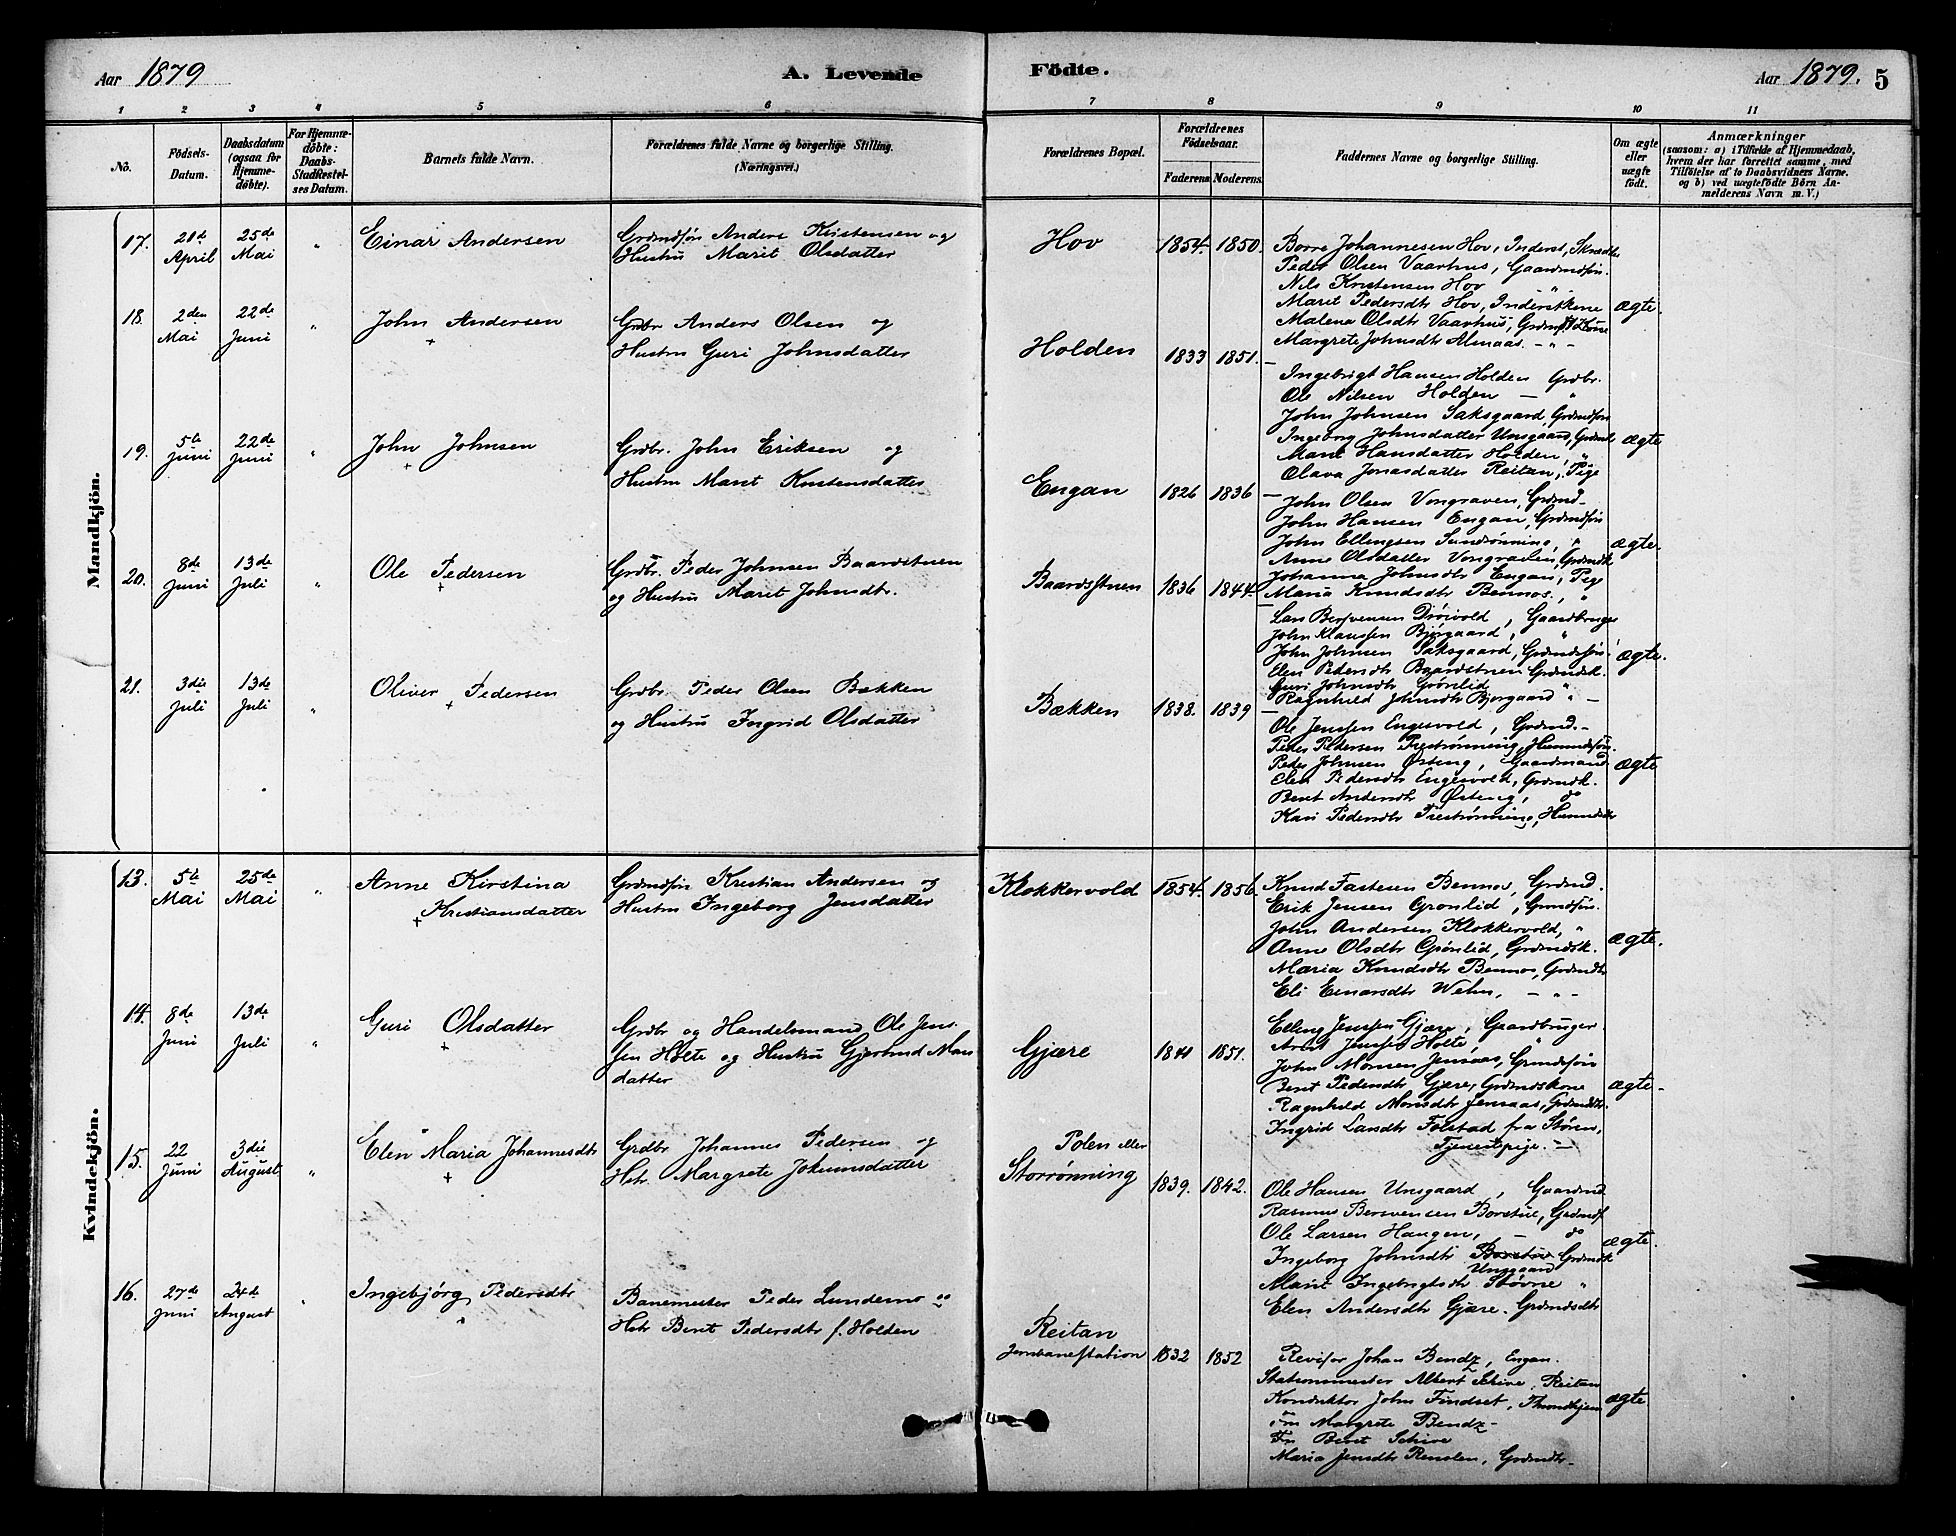 Aar 1879
A. Levende
Födte.
Aar 1879. 5
1 2 3 4 5 6 7 8 9 10 11
No.
Födsels-
Datum.
Daabsdatum
(ogsaa for
Hjemme-
döbte).
For Hjemme-
döbte:
Daabs-
Stadfæstel-
ses Datum.
Barnets fulde Navn.
Forældrenes fulde Navne og borgerlige Stilling.
(Næringsvei.)
Forældrenes Bopæl.
Forældrenes
Födselsaar.
Faderens Moderens
Faddernes Navne og borgerlige Stilling.
Om ægte
eller
uægte
födt.
Anmærkninger
(saasom: a) i Tilfælde af Hjemmedaab,
hvem der har forrettet samme, med
Tilföielse af to Daabsvidners Navne.
og b) ved uægtefödte Börn An-
melderens Navn m. V.)
Mandkjön.
17.
21de
April
25de
Mai
"
Einar Andersen
Grdmdsøn Anders Kristensen og
Hustru Marit Olsdatter
Hov
1854. 1850.
Borre Johannesen Hov, Inderst,
Peder Olsen Vaarhus, Gaardmdsøn.
Nils Kristensen Hov
Marit Pedersdtr Hov, Inderstkone
Malena Olsdtr Vaarhus,
Margrete Johnsdtr Almaas. - " -
ægte.
18.
2den
Mai
22de
Juni
"
John Andersen
+
Grdbr Anders Olsen og
Hustru Guri Johnsdatter
Holden
1833 1851.
Ingebrigt Hansen Holden Grdbr.
Ole Nilsen Holden - "
John Johnsen Saksgaard, Grdmdsøn
Ingeborg Johnsdatter Unsgaard, Grdmd
Marit Hansdatter Holden, "
Olava Jonasdatter Reitan, Pige
ægte
19.
5te
Juni
22de
Juni
"
John Johnsen
+
Grdbr. John Eriksen og
Hustru Marit Kristensdatter
Engan
1826 1836
John Olsen Vongraven, Grdmd.
John Hansen Engan, Grdmdsøn
John Ellingsen Sundrønning, "
Anne Olsdatter Vongraven, Grdmdsk
Johanna Johnsdtr Engan, Pige
Maria Knudsdtr Bennos., "
ægte.
20.
8de
Juni
13de
Juli
"
Ole Pedersen
+
Grdbr. Peder Johnsen Baardstuen
og Hustru Marit Johnsdtr.
Baardsstuen
1836 1844.
Lars Bersvensen Drøivold, Gaardbruger
John Klaussen Bjørgaard, "
John Johnsen Saksgaard, Grdmdsøn
Elen Pedersdtr Baardstuen Grdmdsk.
Guri Johnsdtr Grønlid "
Ragnhild Johnsdtr Bjørgaard " -
ægte.
21.
3die
Juli
13de
Juli
"
Oliver Pedersen
+
Grdbr Peder Olsen Bækken
og Hustru Ingrid Olsdatter
Bækken
1838. 1839
Ole Jenssen Engesvold, Grdmd. -
Peder Pedersen Prestrønning, Husmdsøn.
Peder Johnsen Østeng, Gaardmand
Elen Pedersdtr Engesvold, Grdmdk.
Beret Andersdtr Østeng, do
Kari Pedersdtr Prestrønning, Husmdsdtr
ægte
Kvindekjön.
13.
5te
Mai
25de
Mai
"
Anne Kirstina
+ Kristiansdatter
Grdmdsøn Kristian Andersen og
Hustru Ingeborg Jensdatter
Klokkervold
1854. 1856.
Knud Fastesen Bennos, Grdmd.
Erik Jensen Grønlid, Grmdsøn.
John Andersen Klokkervold, "
Anne Olsdtr Grønlid, Grdmdsk.
Maria Knudsdtr Bennos, Grdmdtr
Eli Einarsdtr Wehn, - " -
ægte.
14.
8de
Juni
13de
Juli
"
Guri Olsdatter
+
Grdbr og Handelsmand Ole Jens-
sen Holte og Hustru Gjertrud Mons
datter
Gjære
1841 1851.
Elling Jenssen Gjære, Gaardbruger
Arnt Jenssen Holte "
John Monsen Jensaas, Grmdsøn
Beret Pedersdtr Gjære, Grdmdskone
Ragnhild Monsdtr Jensaas, Grdmdtr.
Ingrid Larsdtr Folstad fra Støren,
Tjenestepige. -
ægte -
15.
22
Juni
3die
August
"
Elen Maria Johannesdtr
+
Grdbr Johannes Pedersen og
Hstr Margrete Jokumsdatter
Polen eller
Storrønning
1839. 1842.
Ole Hansen Unsgaard, Gaardmd
Rasmus Bersvensen Borstue, Grdmdsf
Ole Larsen Haugen, - do
Ingeborg Johnsdtr Borstue Grdmdsk
Unsgaard
Marit Ingebrigtsdtr Støvne "
Elen Andersdtr Gjære. Grdmdsdtr
ægte.
16.
27de
Juni
24de
August
"
Ingebjørg Pedersdtr
"
Banemester Peder Lundemo og
Hstr Beret Pedersdtr f. Holden
Reitan
Jernbanestation
1832 1852
Revisor Johan Bendz, Engan.
Stationsmester Albert Schive, Reitan
Konduktør John Findset, Throndhjem
Fru Margrete Bendz -
Fru Beret Schive
Maria Jensdtr Renslen, Grdmdtr -
ægte